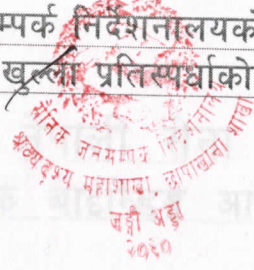 म्पर्क निर्देशनालयको
खुल्ला प्रतिस्पर्धाको
सैनिक जनसम्पर्क
श्रव्यदृश्य महाशाखा, छापाखाना शाखा
जङ्गी अड्डा